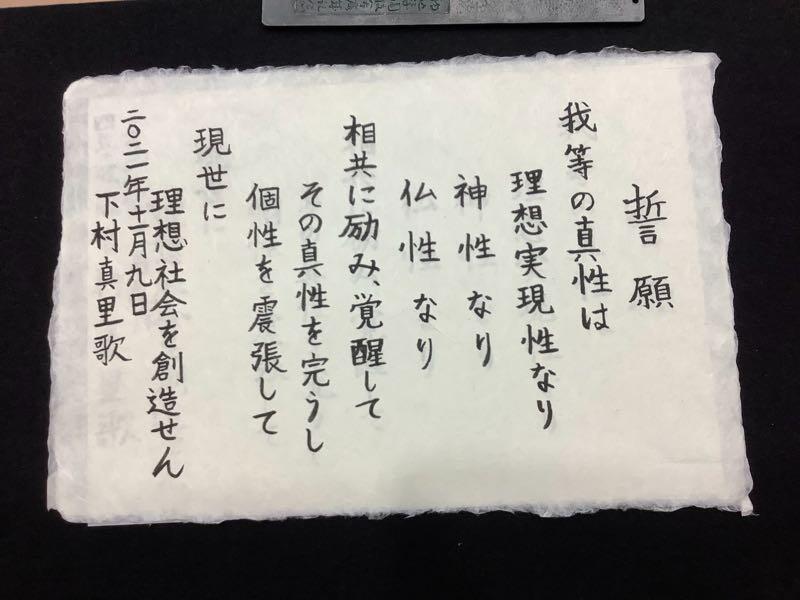 誓願
我等の真性は
理想実現性なり
神性なり
仏性なり
相共に励み、覚醒して
その真性を完うし
個性を震張して
現世に
理想社会を創造せん
二〇二一年十一月九日
下村真里歌